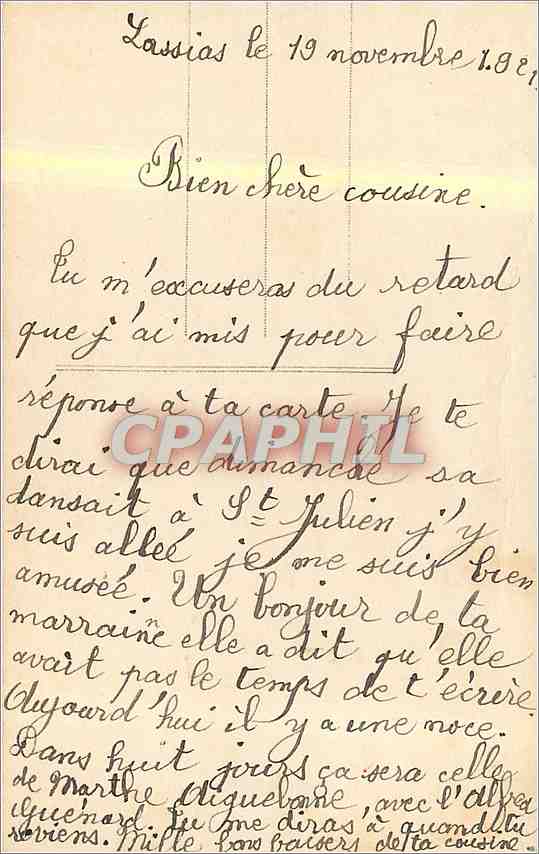 Lassias le 19 novembre 1.921
Bien chère cousine.
Tu m'excuseras du retard
que j'ai mis pour faire
réponse à ta carte. Je te
CPAPHIL
dirai que dimanche sa
dansait à St Julien j'y
suis alleé je me suis bien
amuseé. Un bonjour de ta
marraine elle a dit qu'elle
avait pas le temps de t'écrire.
Aujourd'hui il y a une noce.
Dans huit jours ça sera celle
de Marthe Aiguebonne, avec l'Alfred
Guénard. Tu me diras à quand tu
reviens. Mille bons baisers de ta cousine.